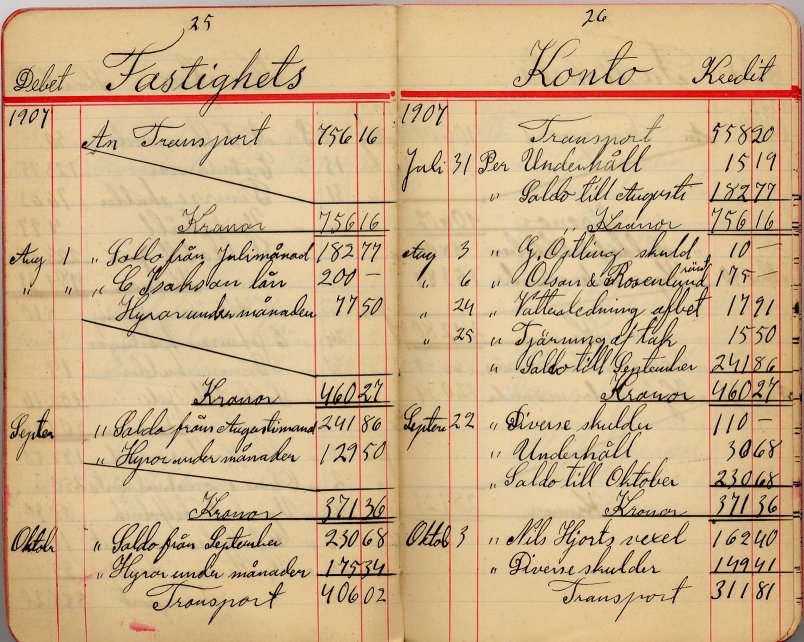 25
Debet Fastighets
1907
An Transport 756 16
Kronor 756 16
Aug 1 " Saldo från Julimånad 182 77
" " " C Isakson lån 200 —
Hyror under månaden 77 50
Kronor 460 27
Septer " Saldo från Augustimånd 241 86
" Hyror under månader 129 50
Kronor 371 36
Oktobr " Saldo från September 230 68
" Hyror under månader 175 34
Transport 406 02
26
Konto Kredit
1907
Transport 558 20
Juli 31 Per Underhåll 15 19
" Saldo till Augusti 182 77
" Kronor 756 16
Aug 3 " G. Östling skuld 10 —
" 6 " Olson & Rosenlund 175 —
" 24 " Vattenledning 17 91
" 25 " Tjärning af tak 15 50
" Saldo till September 241 86
Kronor 460 27
Septem 22 " Diverse skulder 110 —
" Underhåll 30 68
" Saldo till Oktober 230 68
Kronor 371 36
Oktob 3 " Nils Hjorts vexel 162 40
" Diverse skulder 149 41
Transport 311 81